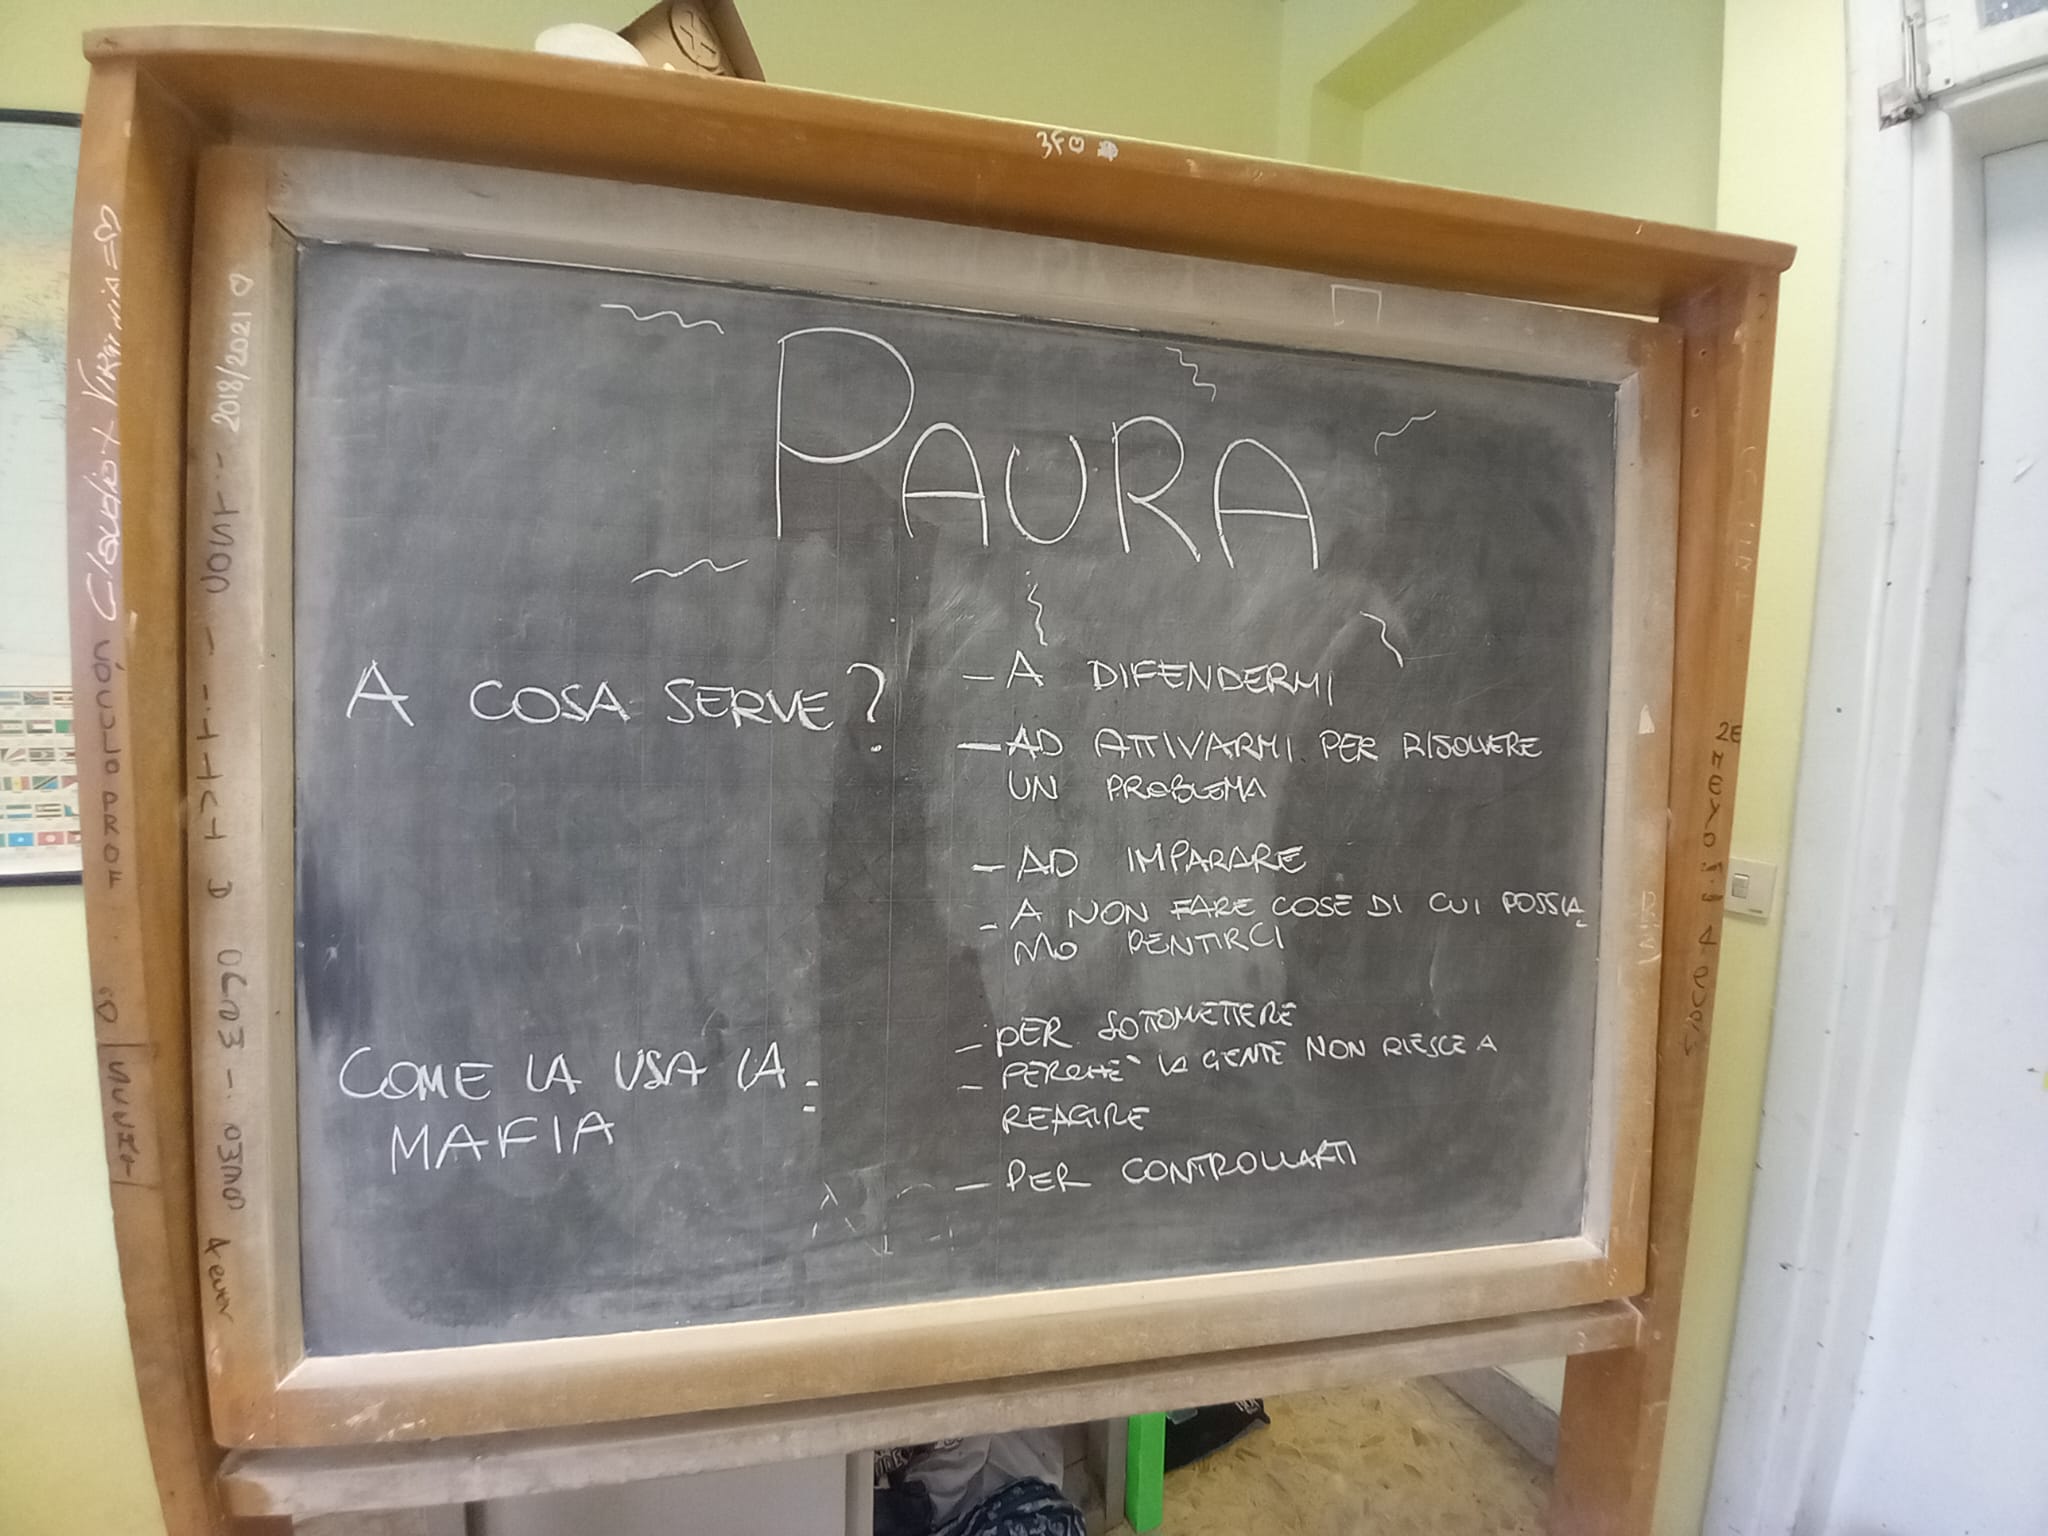 3F
PAURA
A COSA SERVE?
- A DIFENDERMI
- AD ATTIVARMI PER RISOLVERE
UN PROBLEMA
- AD IMPARARE
- A NON FARE COSE DI CUI POSSIA
MO PENTIRCI
COME LA USA LA
MAFIA :
- PER SOTTOMETTERE
- PERCHÈ LA GENTE NON RIESCE A
REAGIRE
- PER CONTROLLARTI
Claudio + Virginia =
2018/2021
PROF
2E